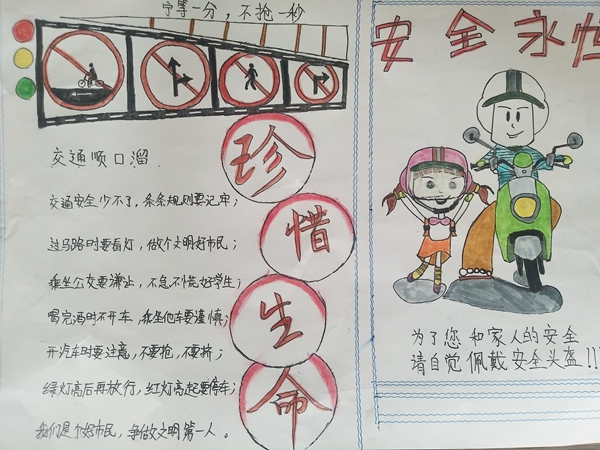 宁等一分，不抢一秒
交通顺口溜
交通安全少不了，条条规则要记牢；
过马路时要看灯，做个文明好市民；
乘坐公交要谦让，不急不慌好学生；
喝完酒时不开车，乘坐他车要谨慎；
开汽车时要注意，不要抢，不要挤；
绿灯亮后再放行，红灯亮起要停车；
我们是个好市民，争做文明第一人。
珍
惜
生
命
安全永恒
为了您和家人的安全
请自觉佩戴安全头盔!!!